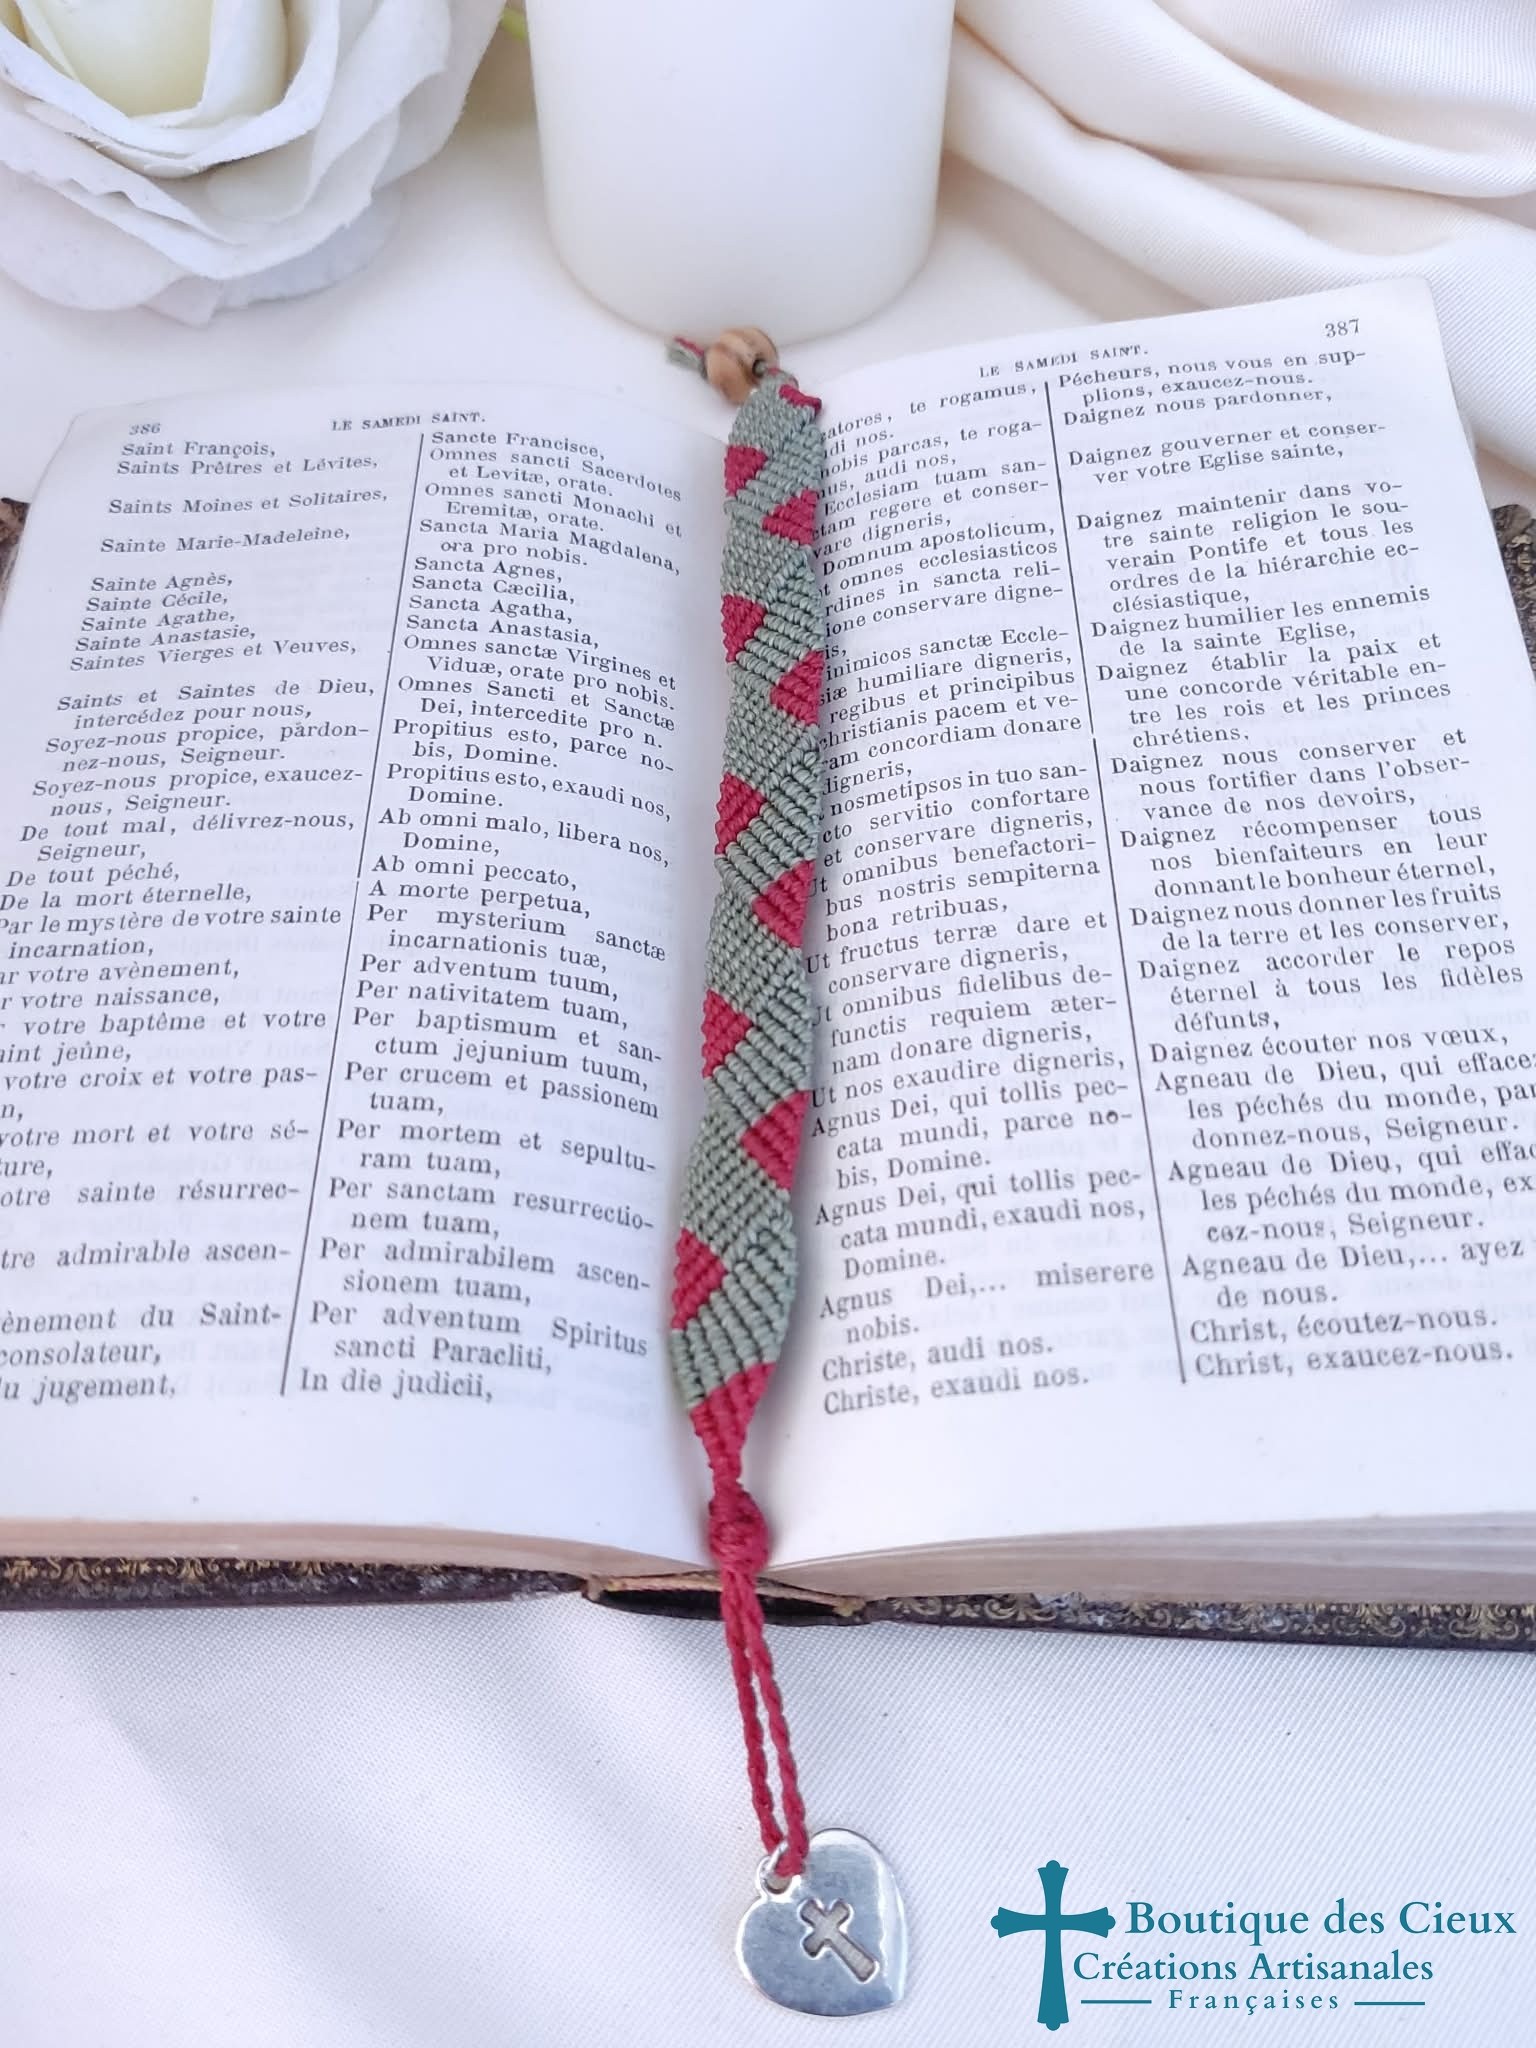 386
LE SAMEDI SAINT.
Saint François,
Saints Prêtres et Lévites,
Saints Moines et Solitaires,
Sainte Marie-Madeleine,
Sainte Agnès,
Sainte Cécile,
Sainte Agathe,
Sainte Anastasie,
Saintes Vierges et Veuves,
Saints et Saintes de Dieu,
intercédez pour nous,
Soyez-nous propice, pardon-
nez-nous, Seigneur.
Soyez-nous propice, exaucez-
nous, Seigneur.
De tout mal, délivrez-nous,
Seigneur,
De tout péché,
De la mort éternelle,
Par le mystère de votre sainte
incarnation,
votre avènement,
votre naissance,
votre baptême et votre
jeûne,
votre croix et votre pas-
votre mort et votre sé-
sainte résurrec-
admirable ascen-
du Saint-
consolateur,
jugement,
Sancte Francisce,
Omnes sancti Sacerdotes
et Levitæ, orate.
Omnes sancti Monachi et
Eremitæ, orate.
Sancta Maria Magdalena,
ora pro nobis.
Sancta Agnes,
Sancta Cæcilia,
Sancta Agatha,
Sancta Anastasia,
Omnes sanctæ Virgines et
Viduæ, orate pro nobis.
Omnes Sancti et Sanctæ
Dei, intercedite pro n.
Propitius esto, parce no-
bis, Domine.
Propitius esto, exaudi nos,
Domine.
Ab omni malo, libera nos,
Domine,
Ab omni peccato,
A morte perpetua,
Per mysterium sanctæ
incarnationis tuæ,
Per adventum tuum,
Per nativitatem tuam,
Per baptismum et san-
ctum jejunium tuum,
Per crucem et passionem
tuam,
Per mortem et sepultu-
ram tuam,
Per sanctam resurrectio-
nem tuam,
Per admirabilem ascen-
sionem tuam,
Per adventum Spiritus
sancti Paracliti,
In die judicii,
LE SAMEDI SAINT.
387
te rogamus,
nos.
nobis parcas, te roga-
audi nos,
Ecclesiam tuam san-
regere et conser-
digneris,
Domnum apostolicum,
omnes ecclesiasticos
in sancta reli-
conservare digne-
inimicos sanctæ Eccle-
humiliare digneris,
regibus et principibus
christianis pacem et ve-
concordiam donare
digneris,
nosmetipsos in tuo san-
cto servitio confortare
et conservare digneris,
Ut omnibus benefactori-
bus nostris sempiterna
bona retribuas,
Ut fructus terræ dare et
conservare digneris,
Ut omnibus fidelibus de-
functis requiem æter-
nam donare digneris,
Ut nos exaudire digneris,
Agnus Dei, qui tollis pec-
cata mundi, parce no-
bis, Domine.
Agnus Dei, qui tollis pec-
cata mundi, exaudi nos,
Domine.
Agnus Dei,... miserere
nobis.
Christe, audi nos.
Christe, exaudi nos.
Pécheurs, nous vous en sup-
plions, exaucez-nous.
Daignez nous pardonner,
Daignez gouverner et conser-
ver votre Eglise sainte,
Daignez maintenir dans vo-
tre sainte religion le sou-
verain Pontife et tous les
ordres de la hiérarchie ec-
clésiastique,
Daignez humilier les ennemis
de la sainte Eglise,
Daignez établir la paix et
une concorde véritable en-
tre les rois et les princes
chrétiens,
Daignez nous conserver et
nous fortifier dans l'obser-
vance de nos devoirs,
Daignez récompenser tous
nos bienfaiteurs en leur
donnant le bonheur éternel,
Daignez nous donner les fruits
de la terre et les conserver,
Daignez accorder le repos
éternel à tous les fidèles
défunts,
Daignez écouter nos vœux,
Agneau de Dieu, qui effacez
les péchés du monde, par-
donnez-nous, Seigneur.
Agneau de Dieu, qui
les péchés du monde,
cez-nous, Seigneur.
Agneau de Dieu,... ayez
de nous.
Christ, écoutez-nous.
Christ, exaucez-nous.
Boutique des Cieux
Créations Artisanales
Françaises